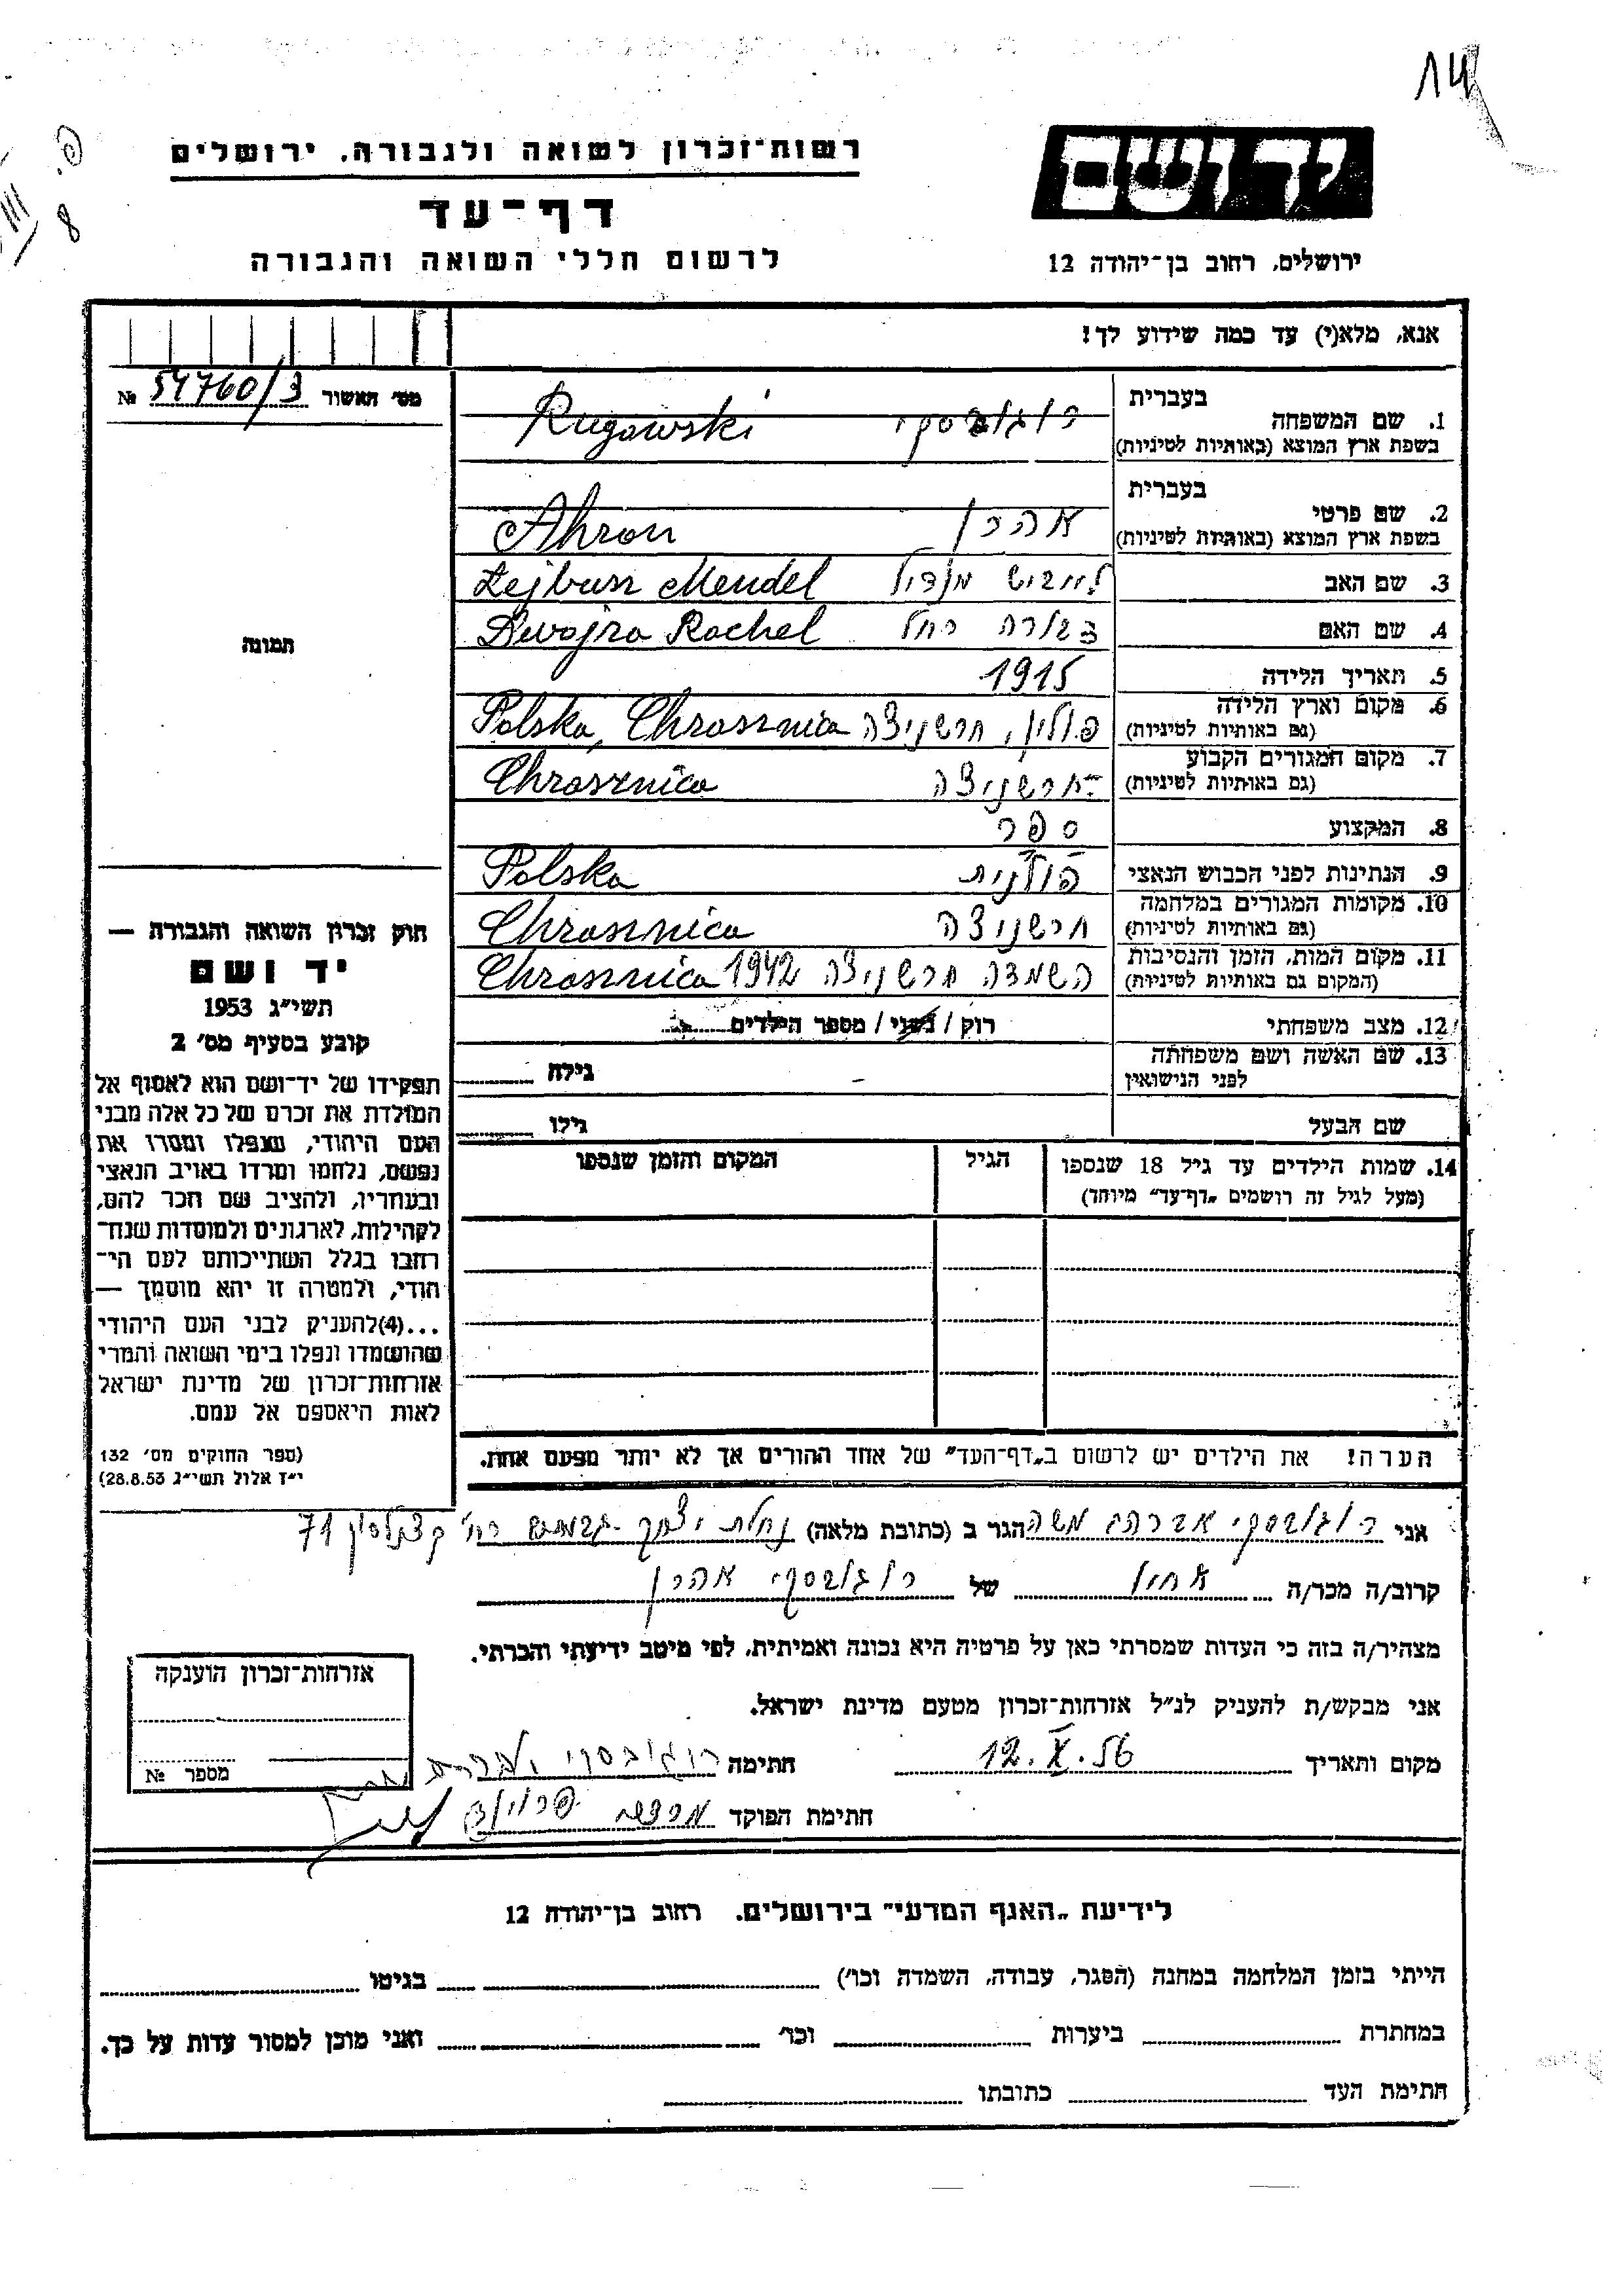 14
רשות־זכרון לשואה ולגבורה, ירושלים
יד ושם
דף־עד
לרשום חללי השואה והגבורה
ירושלים, רחוב בן־יהודה 12
אנא, מלא(י) עד כמה שידוע לך!
מס' האשור № 54760/3
1. שם המשפחה בעברית רוגובסקי
בשפת ארץ המוצא (באותיות לטיניות) Rugowski
2. שם פרטי בעברית אהרן
בשפת ארץ המוצא (באותיות לטיניות) Ahron
3. שם האב לייביש מנדיל Lejbusz Mendel
4. שם האם דבורה רחל Dwojra Rachel
5. תאריך הלידה 1915
6. מקום וארץ הלידה (גם באותיות לטיניות) פולין, חרשניצה Polska, Chrosznica
7. מקום המגורים הקבוע (גם באותיות לטיניות) חרשניצה Chrosznica
8. המקצוע ספר
9. הנתינות לפני הכבוש הנאצי פולנית Polska
10. מקומות המגורים במלחמה (גם באותיות לטיניות) חרשניצה Chrosznica
11. מקום המות, הזמן והנסיבות (המקום גם באותיות לטיניות) השמדה חרשניצה 1942 Chrosznica
12. מצב משפחתי רוק / נשוי / מספר הילדים
13. שם האשה ושם משפחתה לפני הנישואין – גילה
שם הבעל גילו
14. שמות הילדים עד גיל 18 שנספו (מעל לגיל זה רושמים "דף־עד" מיוחד) הגיל המקום והזמן שנספו
הערה! את הילדים יש לרשום ב"דף־העד" של אחד ההורים אך לא יותר מפעם אחת.
תמונה
חוק זכרון השואה והגבורה —
יד ושם
תשי"ג 1953
קובע בסעיף מס' 2
תפקידו של יד־ושם הוא לאסוף אל
המולדת את זכרם של כל אלה מבני
העם היהודי, שנפלו ומסרו את
נפשם, נלחמו ומרדו באויב הנאצי
ובעוזריו, ולהציב שם וזכר להם,
לקהילות, לארגונים ולמוסדות שנח־
רחבו בגלל השתייכותם לעם הי־
הודי, ולמטרה זו יהא מוסמך —
...(4) להעניק לבני העם היהודי
שהושמדו ונפלו בימי השואה והמרי
אזרחות־זכרון של מדינת ישראל
לאות היאספם אל עמם.
(ספר החוקים מס' 132
י"ז אלול תשי"ג 28.8.53)
אני רוגובסקי אברהם משה הגר ב (כתובת מלאה) נחלת יצחק רח' קצנלסון 71
קרוב/ה מכר/ה אחיו של רוגובסקי אהרן
מצהיר/ה בזה כי העדות שמסרתי כאן על פרטיה היא נכונה ואמיתית, לפי מיטב ידיעתי והכרתי.
אני מבקש/ת להעניק לנ"ל אזרחות־זכרון מטעם מדינת ישראל.
מקום ותאריך 12.X.56 חתימה רוגובסקי אברהם
חתימת הפוקד
אזרחות־זכרון הוענקה
מספר №
לידיעת "האגף המדעי" בירושלים, רחוב בן־יהודה 12
הייתי בזמן המלחמה במחנה (הסגר, עבודה, השמדה וכו') בגיטו
במחתרת ביערות וכו' ואני מוכן למסור עדות על כך.
חתימת העד כתובתו